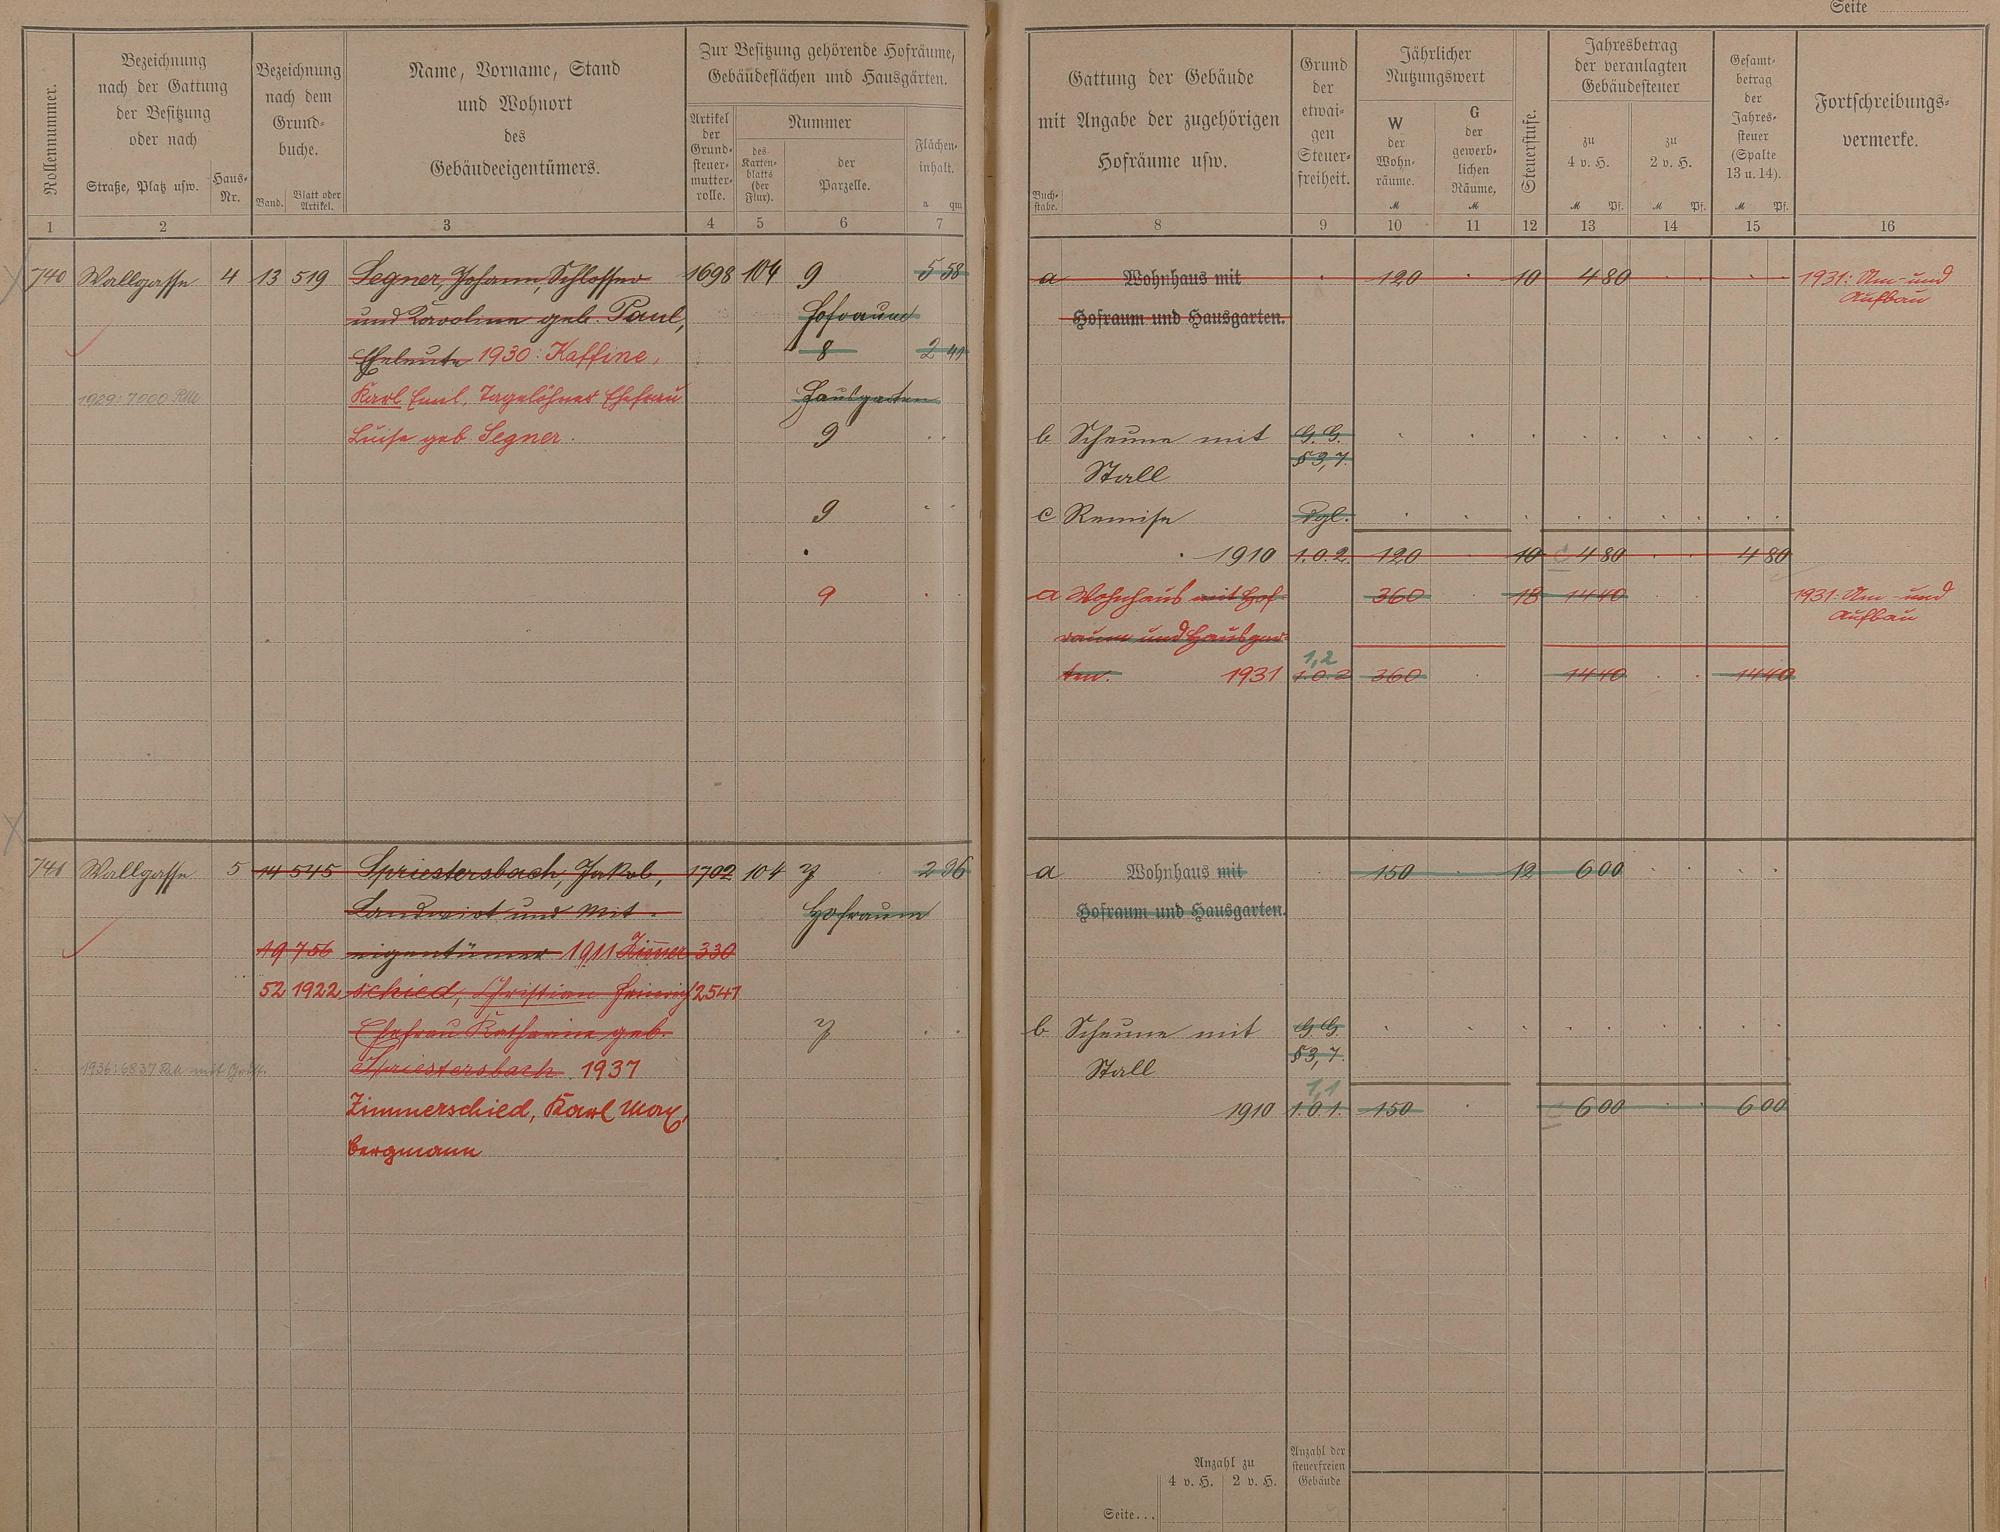 Seite
Rollennummer.
Bezeichnung
nach der Gattung
der Besitzung
oder nach
Straße, Platz usw.
Haus-
Nr.
Bezeichnung
nach dem
Grund-
buche.
Band.
Blatt oder
Artikel.
Name, Vorname, Stand
und Wohnort
des
Gebäudeeigentümers.
Zur Besitzung gehörende Hofräume,
Gebäudeflächen und Hausgärten.
Artikel
der
Grund-
steuer-
mutter-
rolle.
Nummer
des
Karten-
blatts
(der
Flur).
der
Parzelle.
Flächen-
inhalt.
a qm
1 2 3 4 5 6 7
Gattung der Gebäude
mit Angabe der zugehörigen
Hofräume usw.
Buch-
stabe.
Grund
der
etwai-
gen
Steuer-
freiheit.
Jährlicher
Nutzungswert
W
der
Wohn-
räume.
M
G
der
gewerb-
lichen
Räume,
M
Steuerstufe.
Jahresbetrag
der veranlagten
Gebäudesteuer
zu
4 v. H.
M Pf.
zu
2 v. H.
M Pf.
Gesamt-
betrag
der
Jahres-
steuer
(Spalte
13 u. 14).
M Pf.
Fortschreibungs-
vermerke.
8 9 10 11 12 13 14 15 16
740 Wallgasse 4 13 519 Segner, Johann, Schlosser 1698 104 9 5 58
und Karoline geb. Paul, Hofraum
Eheleute 1930: Kaffine, 8 2 41
1929: 7000 RM Karl Emil, Tagelöhner Ehefrau Hausgarten
Luise geb. Segner. 9
9
9
a Wohnhaus mit 120 10 4 80 1931: Um- und
Hofraum und Hausgarten. Aufbau
b Scheune mit G. G.
Stall § 3, 7.
c Remise Dgl.
1910 1.0.2. 120 10 4 80 4 80
a Wohnhaus mit Hof- 360 18 14 40 1931: Um- und
raum und Hausgar- Aufbau
1,2
ten. 1931 1.0.2 360 14 40 14 40
741 Wallgasse 5 14 545 Spriestersbach, Jakob, 1702 104 7 2 96
Landwirt und Mit- Hofraum
19 756 eigentümer 1911 Zimmer- 330
52 1922 schied, Christian Heinrich 2541
Ehefrau Katharine geb. 7
1936: 6837 RM mit Spriestersbach 1937
Zimmerschied, Karl Max,
Bergmann
a Wohnhaus mit 150 12 6 00
Hofraum und Hausgarten.
b Scheune mit G. G.
Stall § 3, 7.
1,1
1910 1.0.1. 150 6 00 6 00
Anzahl zu
4 v. H. 2 v. H.
Anzahl der
steuerfreien
Gebäude
Seite...